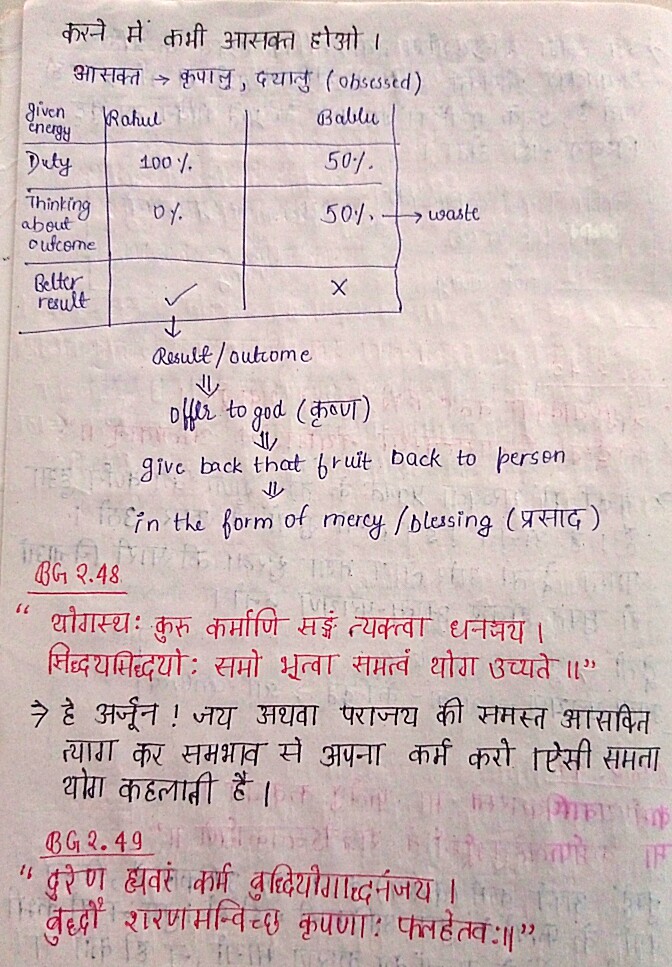 करने में कभी आसक्त होओ ।
आसक्त → कृपालु, दयालु (obsessed)
given energy Rahul Bablu
Duty 100% 50%
Thinking about outcome 0% 50% → waste
Better result ✓ X
↓
Result/outcome
⇓
offer to god (कृष्ण)
⇓
give back that fruit back to person
⇓
in the form of mercy/blessing (प्रसाद)
BG 2.48
“ योगस्थः कुरु कर्माणि सङ्गं त्यक्त्वा धनञ्जय ।
सिद्धयसिद्धयो: समो भूत्वा समत्वं योग उच्यते ॥”
→ हे अर्जून ! जय अथवा पराजय की समस्त आसक्ति
त्याग कर समभाव से अपना कर्म करो । ऐसी समता
योग कहलाती है ।
BG 2.49
“ दुरेण ह्यवरं कर्म बुद्धियोगाद्धनंजय ।
बुद्धौ शरणमन्विच्छ कृपणा: फलहेतव:॥”